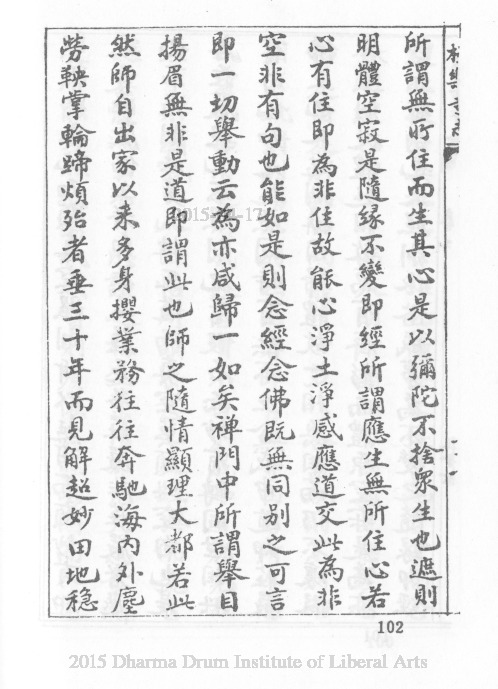 所謂無所住而生其心是以彌陀不捨眾生也遮則
明體空寂是隨緣不變即經所謂應生無所住心若
心有住即為非住故能心淨土淨感應道交此為非
空非有句也能如是則念經念佛既無同別之可言
即一切舉動云為亦咸歸一如矣禅門中所謂舉目
揚眉無非是道即謂此也師之隨情顯理大都若此
然師自出家以来多身攖業務往往奔馳海內外塵
勞鞅掌輪蹄煩殆者垂三十年而見解超妙田地穩
102
2015 Dharma Drum Institute of Liberal Arts